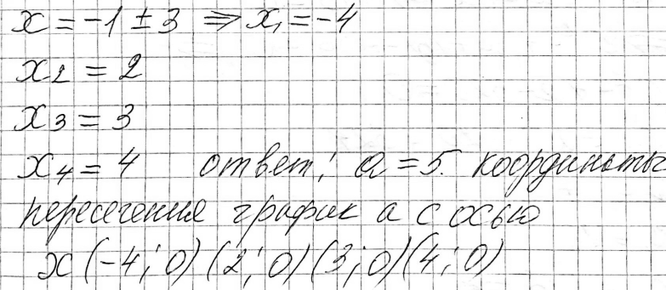 x = -1 ± 3 ⇒ x₁ = -4
x₂ = 2
x₃ = 3
x₄ = 4 ответ: a = 5. координаты
пересечения график а с осью
x (-4; 0) (2; 0) (3; 0) (4; 0)